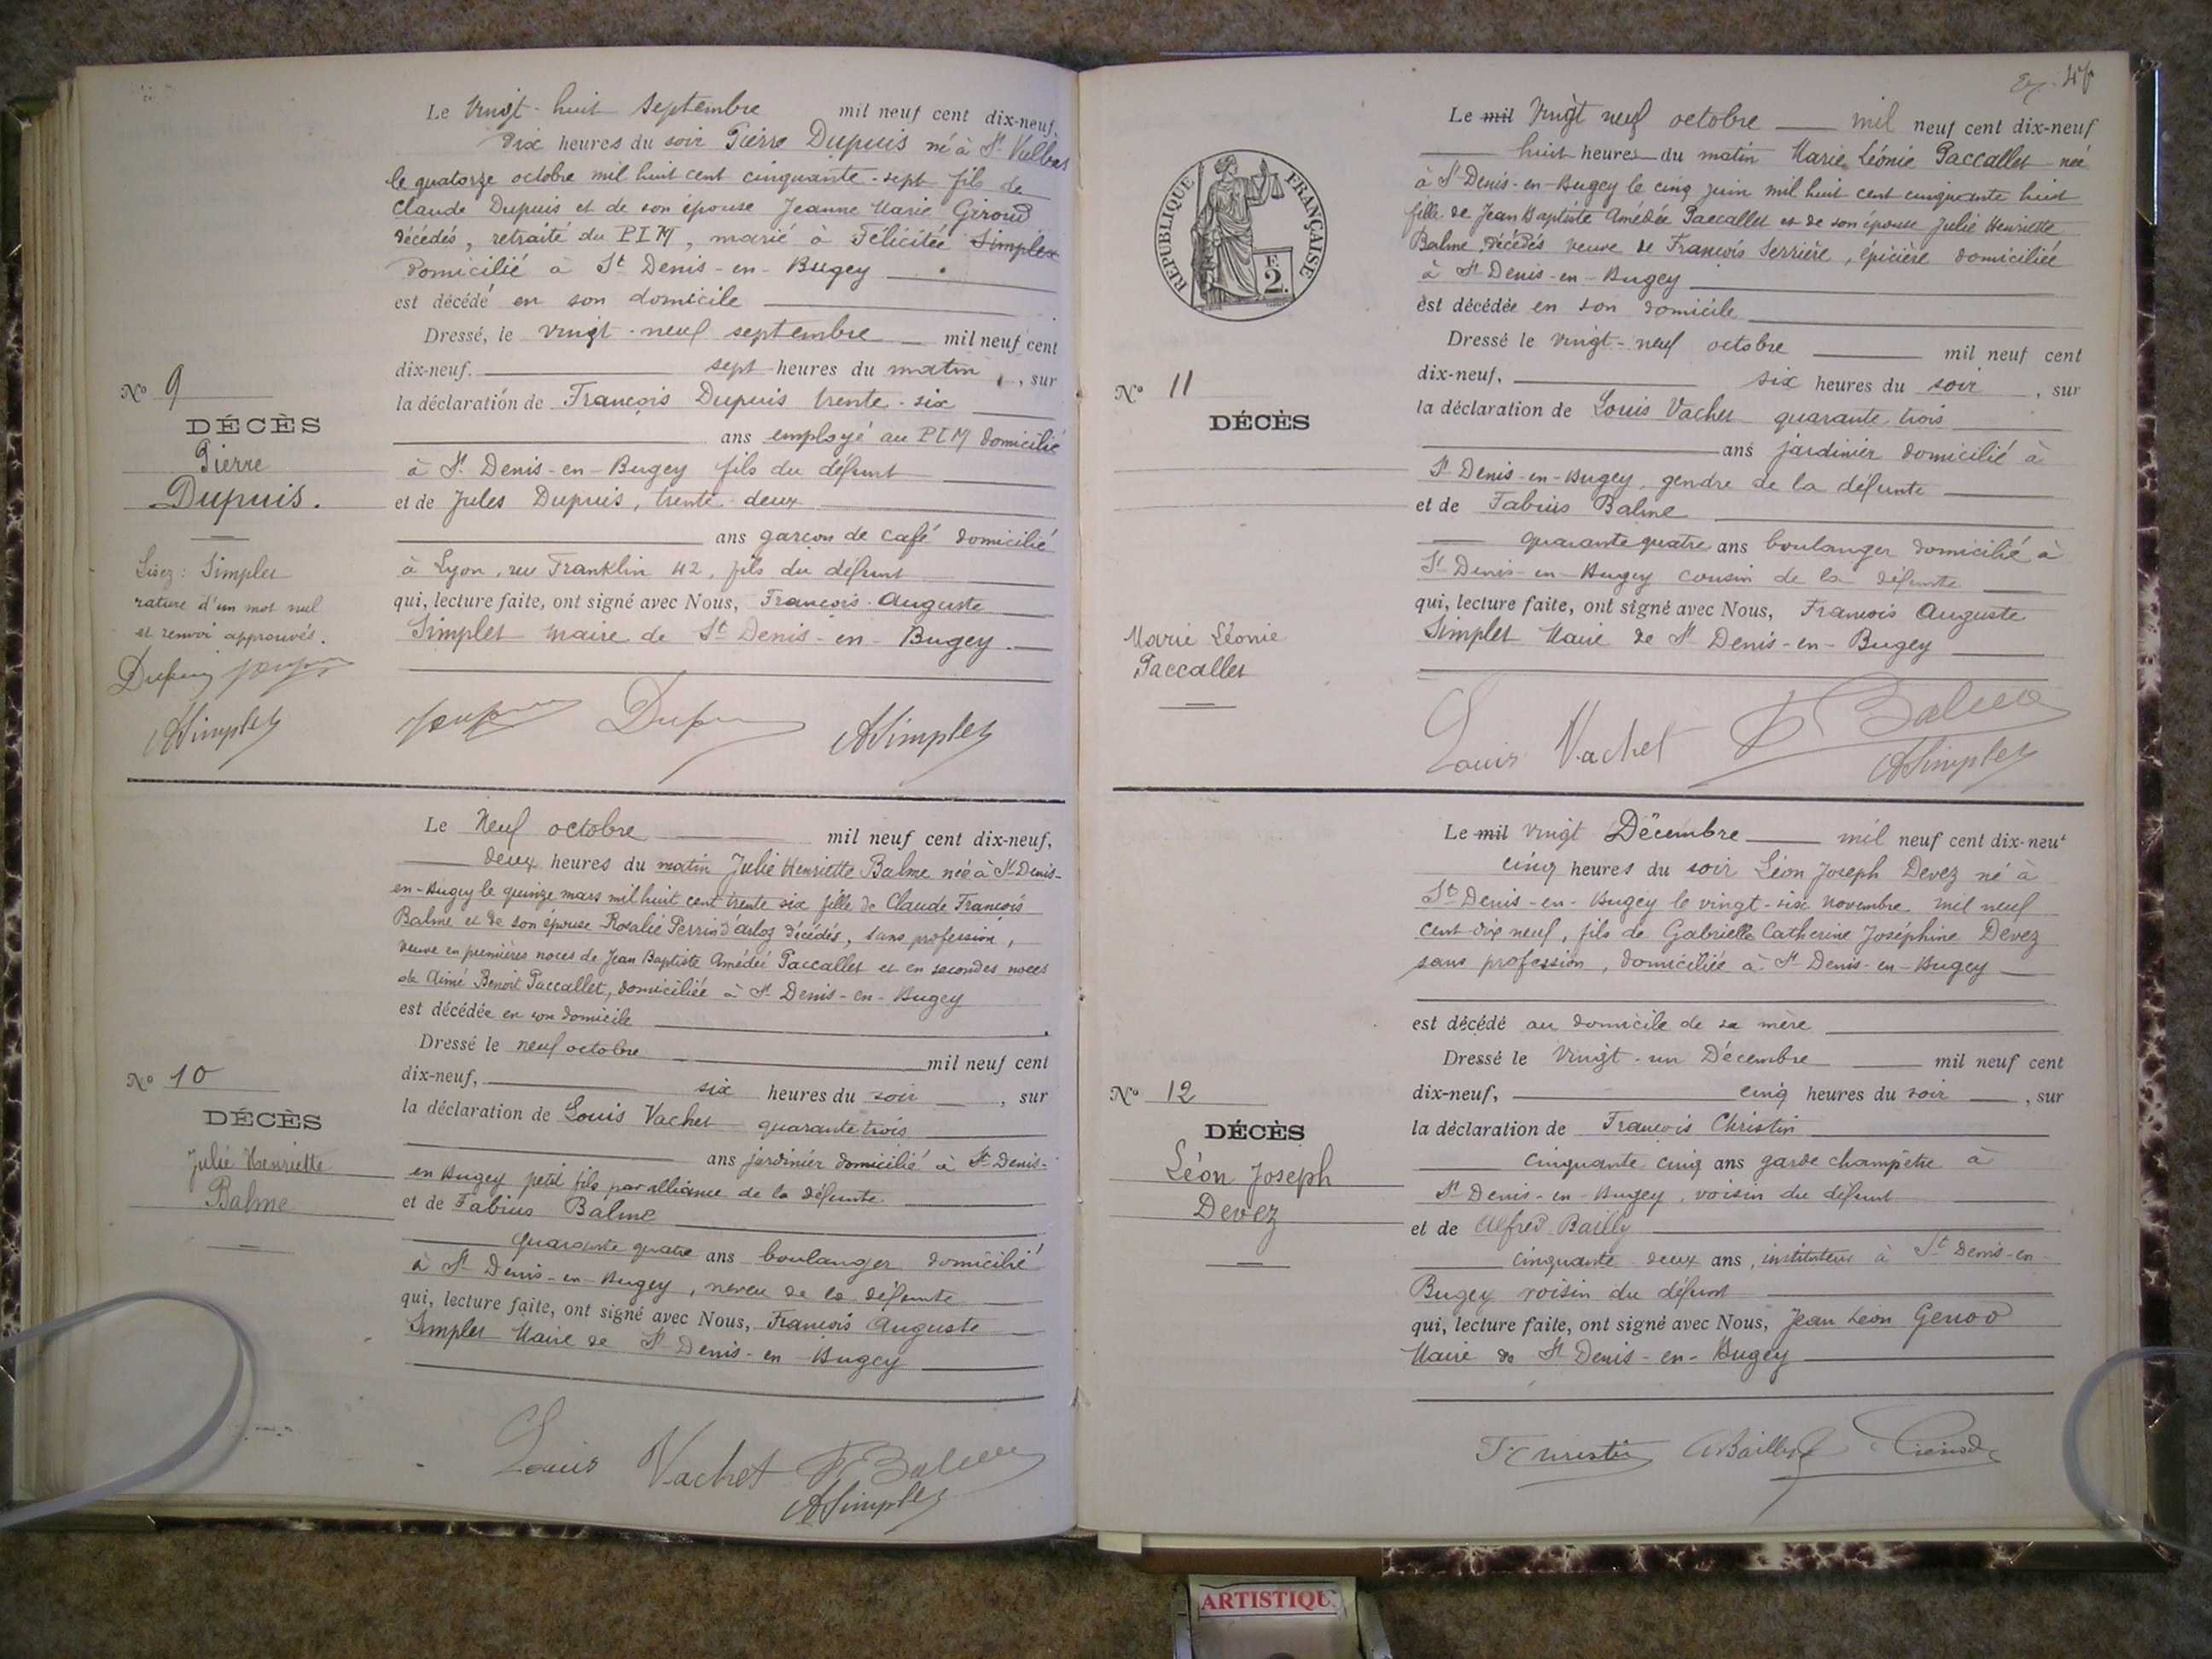 Le vingt-huit septembre mil neuf cent dix-neuf,
dix heures du soir Pierre Dupuis né à St Vulbas
le quatorze octobre mil huit cent cinquante-sept fils de
Claude Dupuis et de son épouse Jeanne Marie Giroud
décédés, retraité du PLM, marié à Félicitée Simplex
domicilié à St Denis-en-Bugey
est décédé en son domicile
Dressé, le vingt-neuf septembre mil neuf cent
dix-neuf. sept heures du matin, sur
la déclaration de François Dupuis trente-six
ans employé au PLM domicilié
à St Denis-en-Bugey fils du défunt
et de Jules Dupuis, trente-deux
ans garçon de café domicilié
à Lyon, rue Franklin 42, fils du défunt
qui, lecture faite, ont signé avec Nous, François-Auguste
Simplet maire de St Denis-en-Bugey.
No 9
DÉCÈS
Pierre
Dupuis.
Lisez: Simplet
rature d'un mot nul
et renvoi approuvés.
Dupuis
ASimplet
Dupuis ASimplet
Le Neuf octobre mil neuf cent dix-neuf,
deux heures du matin Julie Henriette Balme née à St-Denis-
en-Bugey le quinze mars mil huit cent trente six fille de Claude François
Balme et de son épouse Rosalie Perrin d'arloz décédés, sans profession,
veuve en premières noces de Jean Baptiste Amédée Paccallet et en secondes noces
de Aimé Benoit Paccallet, domiciliée à St Denis-en-Bugey
est décédée en son domicile
Dressé le neuf octobre mil neuf cent
dix-neuf, six heures du soir, sur
la déclaration de Louis Vachet quarante trois
ans jardinier domicilié à St Denis-
en Bugey petit fils par alliance de la défunte
et de Fabius Balme
quarante quatre ans boulanger domicilié
à St Denis-en-Bugey, neveu de la défunte
qui, lecture faite, ont signé avec Nous, François Auguste
Simplet Maire de St Denis-en-Bugey
No 10
DÉCÈS
Julie Henriette
Balme
Louis Vachet F Balme
ASimplet
47
RÉPUBLIQUE FRANÇAISE
F.
2.
Le mil Vingt neuf octobre mil neuf cent dix-neuf
huit heures du matin Marie Léonie Paccallet née
à St Denis-en-Bugey le cinq juin mil huit cent cinquante huit
fille de Jean Baptiste Amédée Paccallet et de son épouse Julie Henriette
Balme décédés veuve de François Serrière, épicière domiciliée
à St Denis-en-Bugey
est décédée en son domicile
Dressé le vingt-neuf octobre mil neuf cent
dix-neuf, six heures du soir, sur
la déclaration de Louis Vachet quarante trois
ans jardinier domicilié à
St Denis-en-Bugey, gendre de la défunte
et de Fabius Balme
quarante quatre ans boulanger domicilié à
St Denis-en-Bugey cousin de la défunte
qui, lecture faite, ont signé avec Nous, François Auguste
Simplet Maire de St Denis-en-Bugey
No 11
DÉCÈS
Marie Léonie
Paccallet
Louis Vachet F Balme
ASimplet
Le mil vingt Décembre mil neuf cent dix-neuf
cinq heures du soir Léon Joseph Devez né à
St Denis-en-Bugey le vingt-six novembre mil neuf
cent dix neuf, fils de Gabrielle Catherine Joséphine Devez
sans profession, domiciliée à St Denis-en-Bugey
est décédé au domicile de sa mère
Dressé le Vingt-un Décembre mil neuf cent
dix-neuf, cinq heures du soir, sur
la déclaration de François Christin
cinquante cinq ans garde champêtre à
St Denis-en-Bugey, voisin du défunt
et de Alfred Bailly
cinquante deux ans, instituteur à St Denis-en-
Bugey voisin du défunt
qui, lecture faite, ont signé avec Nous, Jean Léon Genod
Maire de St Denis-en-Bugey
No 12
DÉCÈS
Léon Joseph
Devez
ABailly
ARTISTIQU